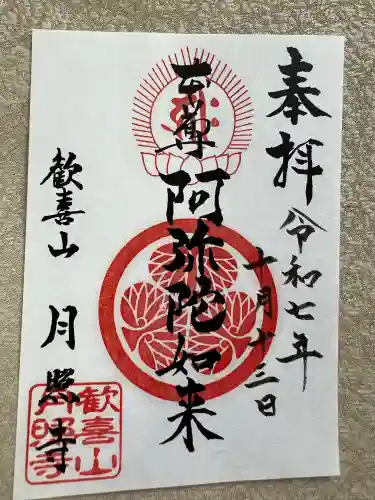 奉拝
令和七年
十月十三日
本尊 阿弥陀如来
歓喜山 月照寺
歓喜山
月照寺